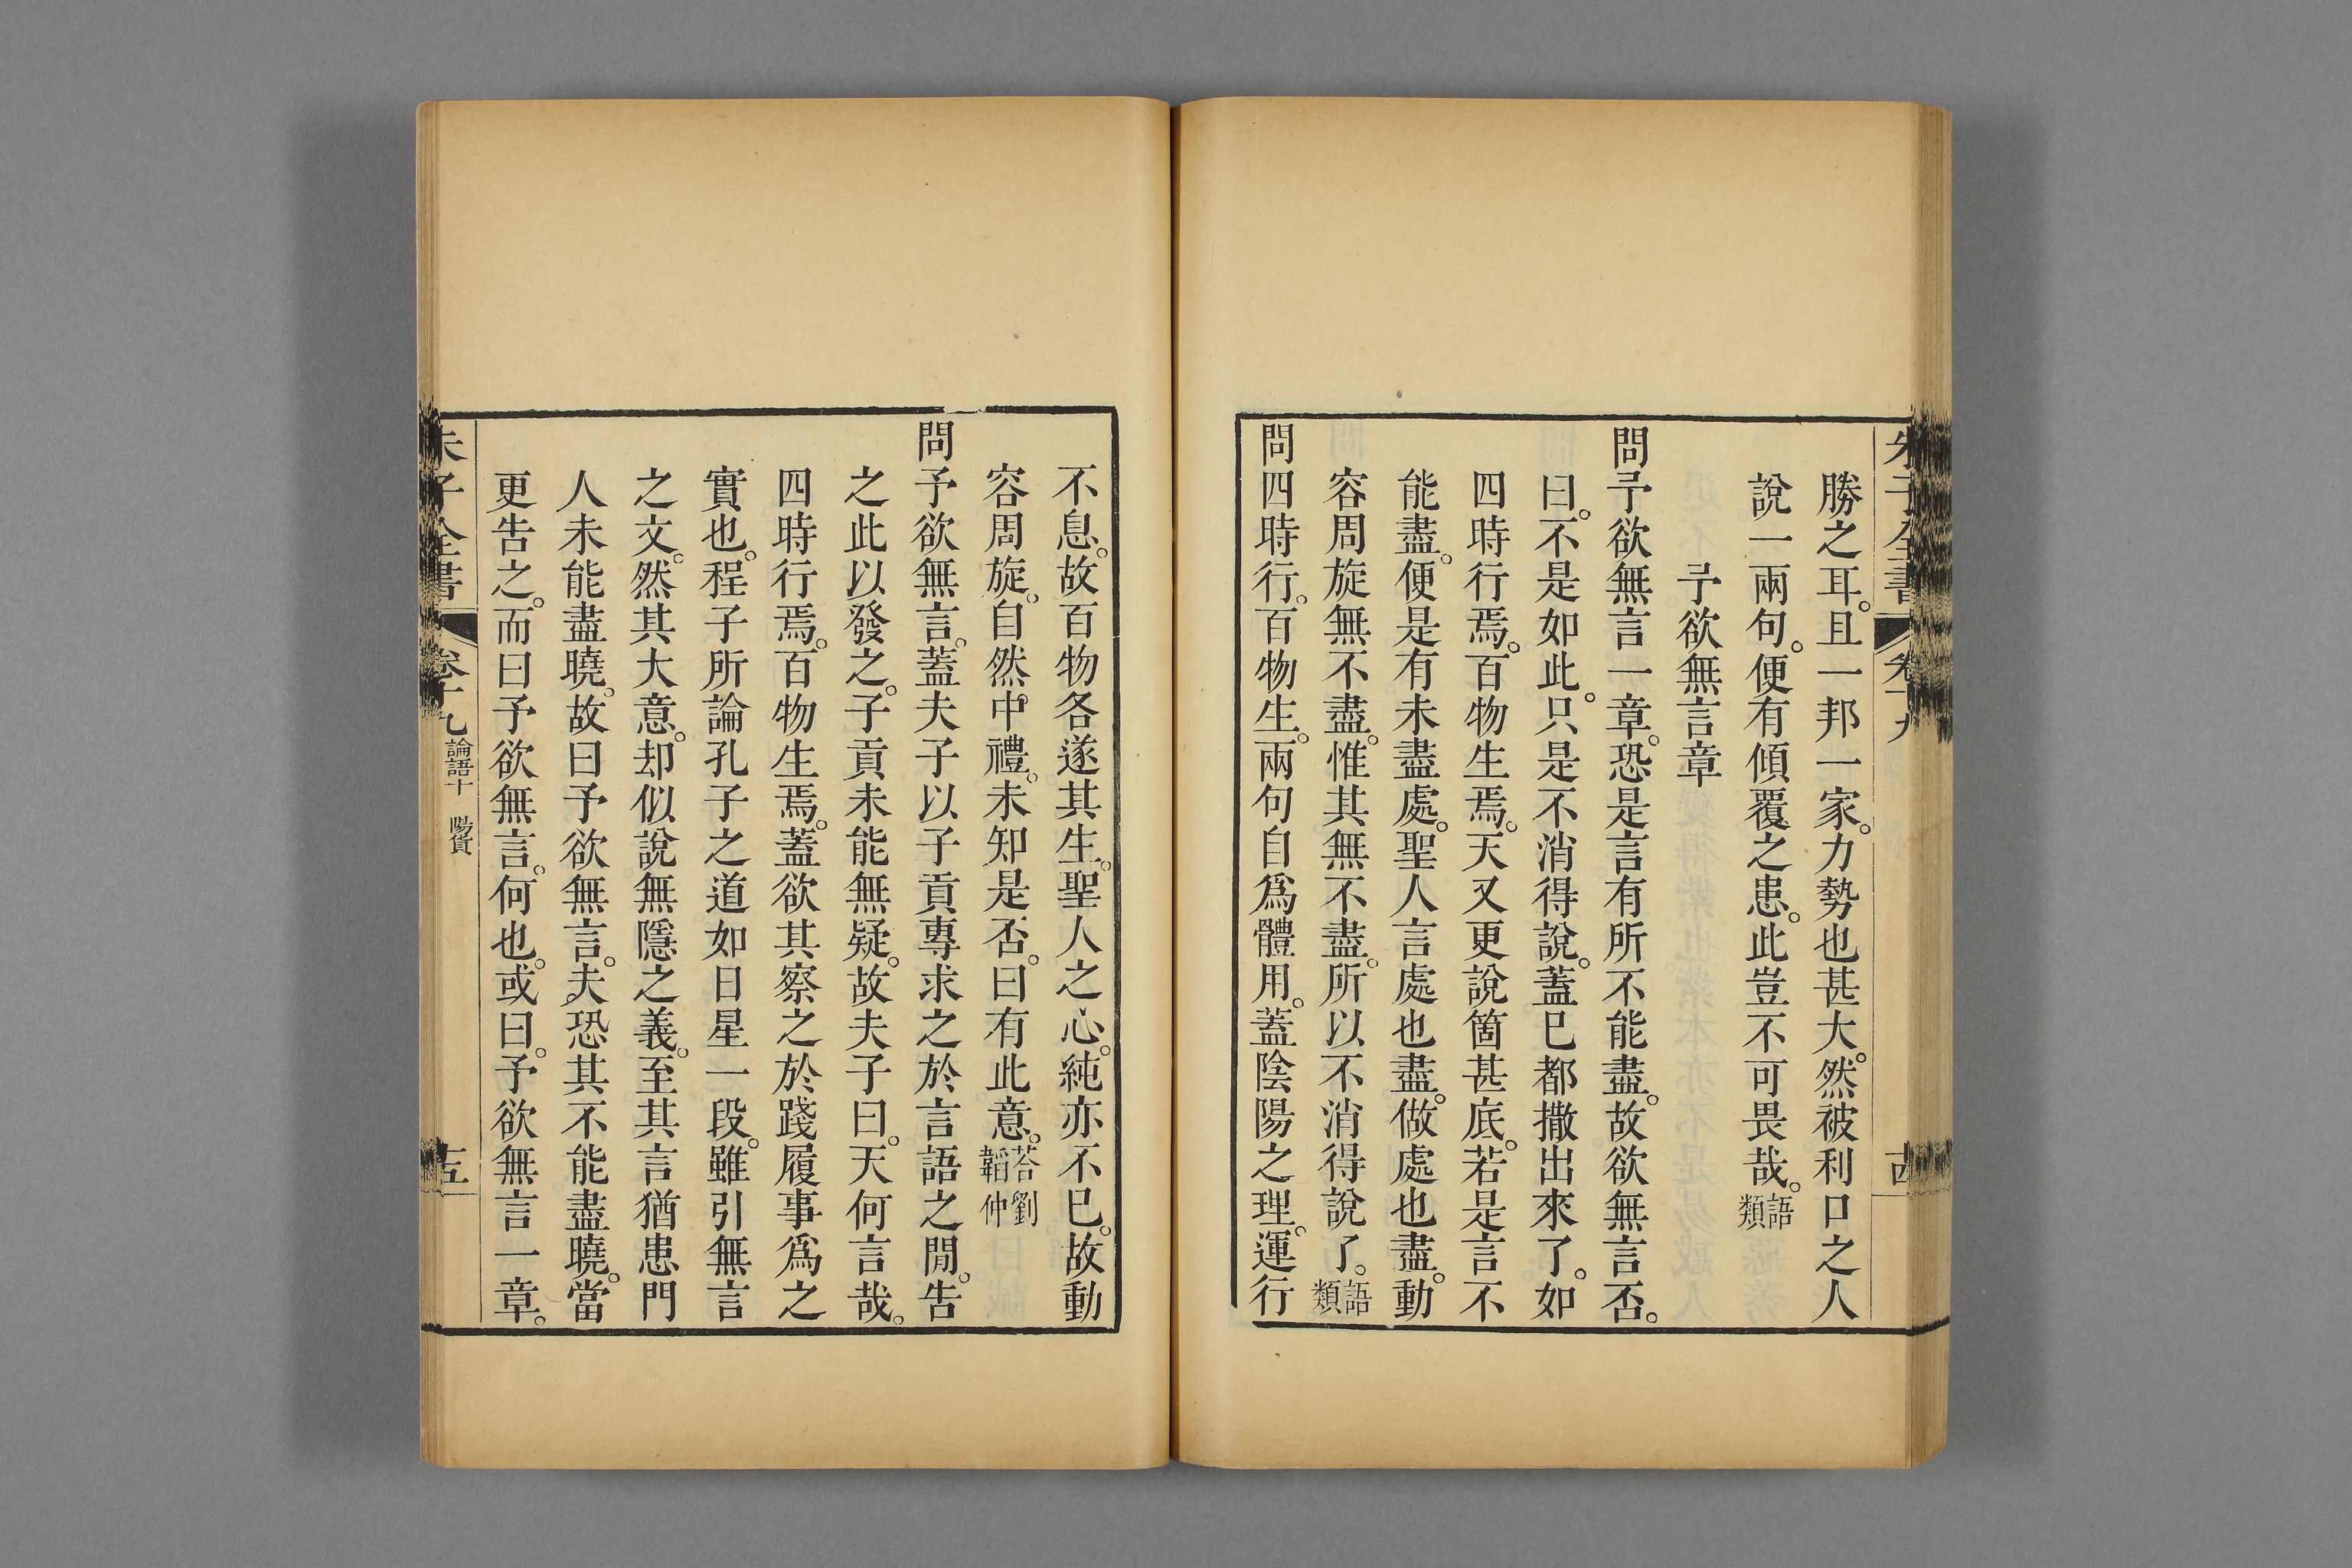 勝之耳。且一邦一家。力勢也甚大。然被利口之人
說一兩句。便有傾覆之患。此豈不可畏哉。語類
予欲無言章
問予欲無言一章。恐是言有所不能盡。故欲無言否。
曰。不是如此。只是不消得說。蓋已都撒出來了。如
四時行焉。百物生焉。天又更說箇甚底。若是言不
能盡。便是有未盡處。聖人言處也盡。做處也盡。動
容周旋無不盡。惟其無不盡。所以不消得說了。語類
問四時行。百物生。兩句自爲體用。蓋陰陽之理。運行
不息。故百物各遂其生。聖人之心。純亦不已。故動
容周旋。自然中禮。未知是否。曰。有此意。荅劉韜仲
問予欲無言。蓋夫子以子貢專求之於言語之閒。告
之此以發之。子貢未能無疑。故夫子曰。天何言哉。
四時行焉。百物生焉。蓋欲其察之於踐履事爲之
實也。程子所論孔子之道如日星一段。雖引無言
之文。然其大意。却似說無隱之義。至其言猶患門
人未能盡曉。故曰予欲無言。夫恐其不能盡曉。當
更告之。而曰予欲無言。何也。或曰。予欲無言一章。
朱子全書 卷十九 論語十 陽貨 十五